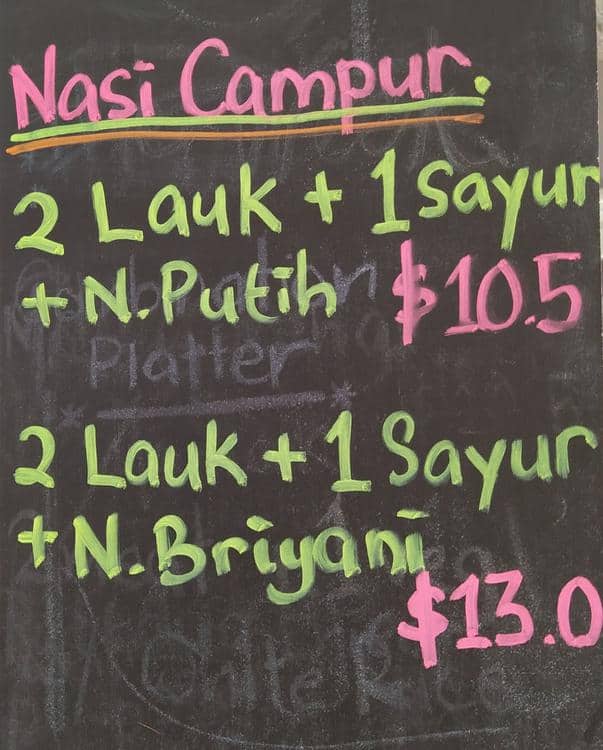 Nasi Campur.
2 Lauk + 1 Sayur
+ N.Putih $10.5
Platter
2 Lauk + 1 Sayur
+ N.Briyani
$13.0
White Rice